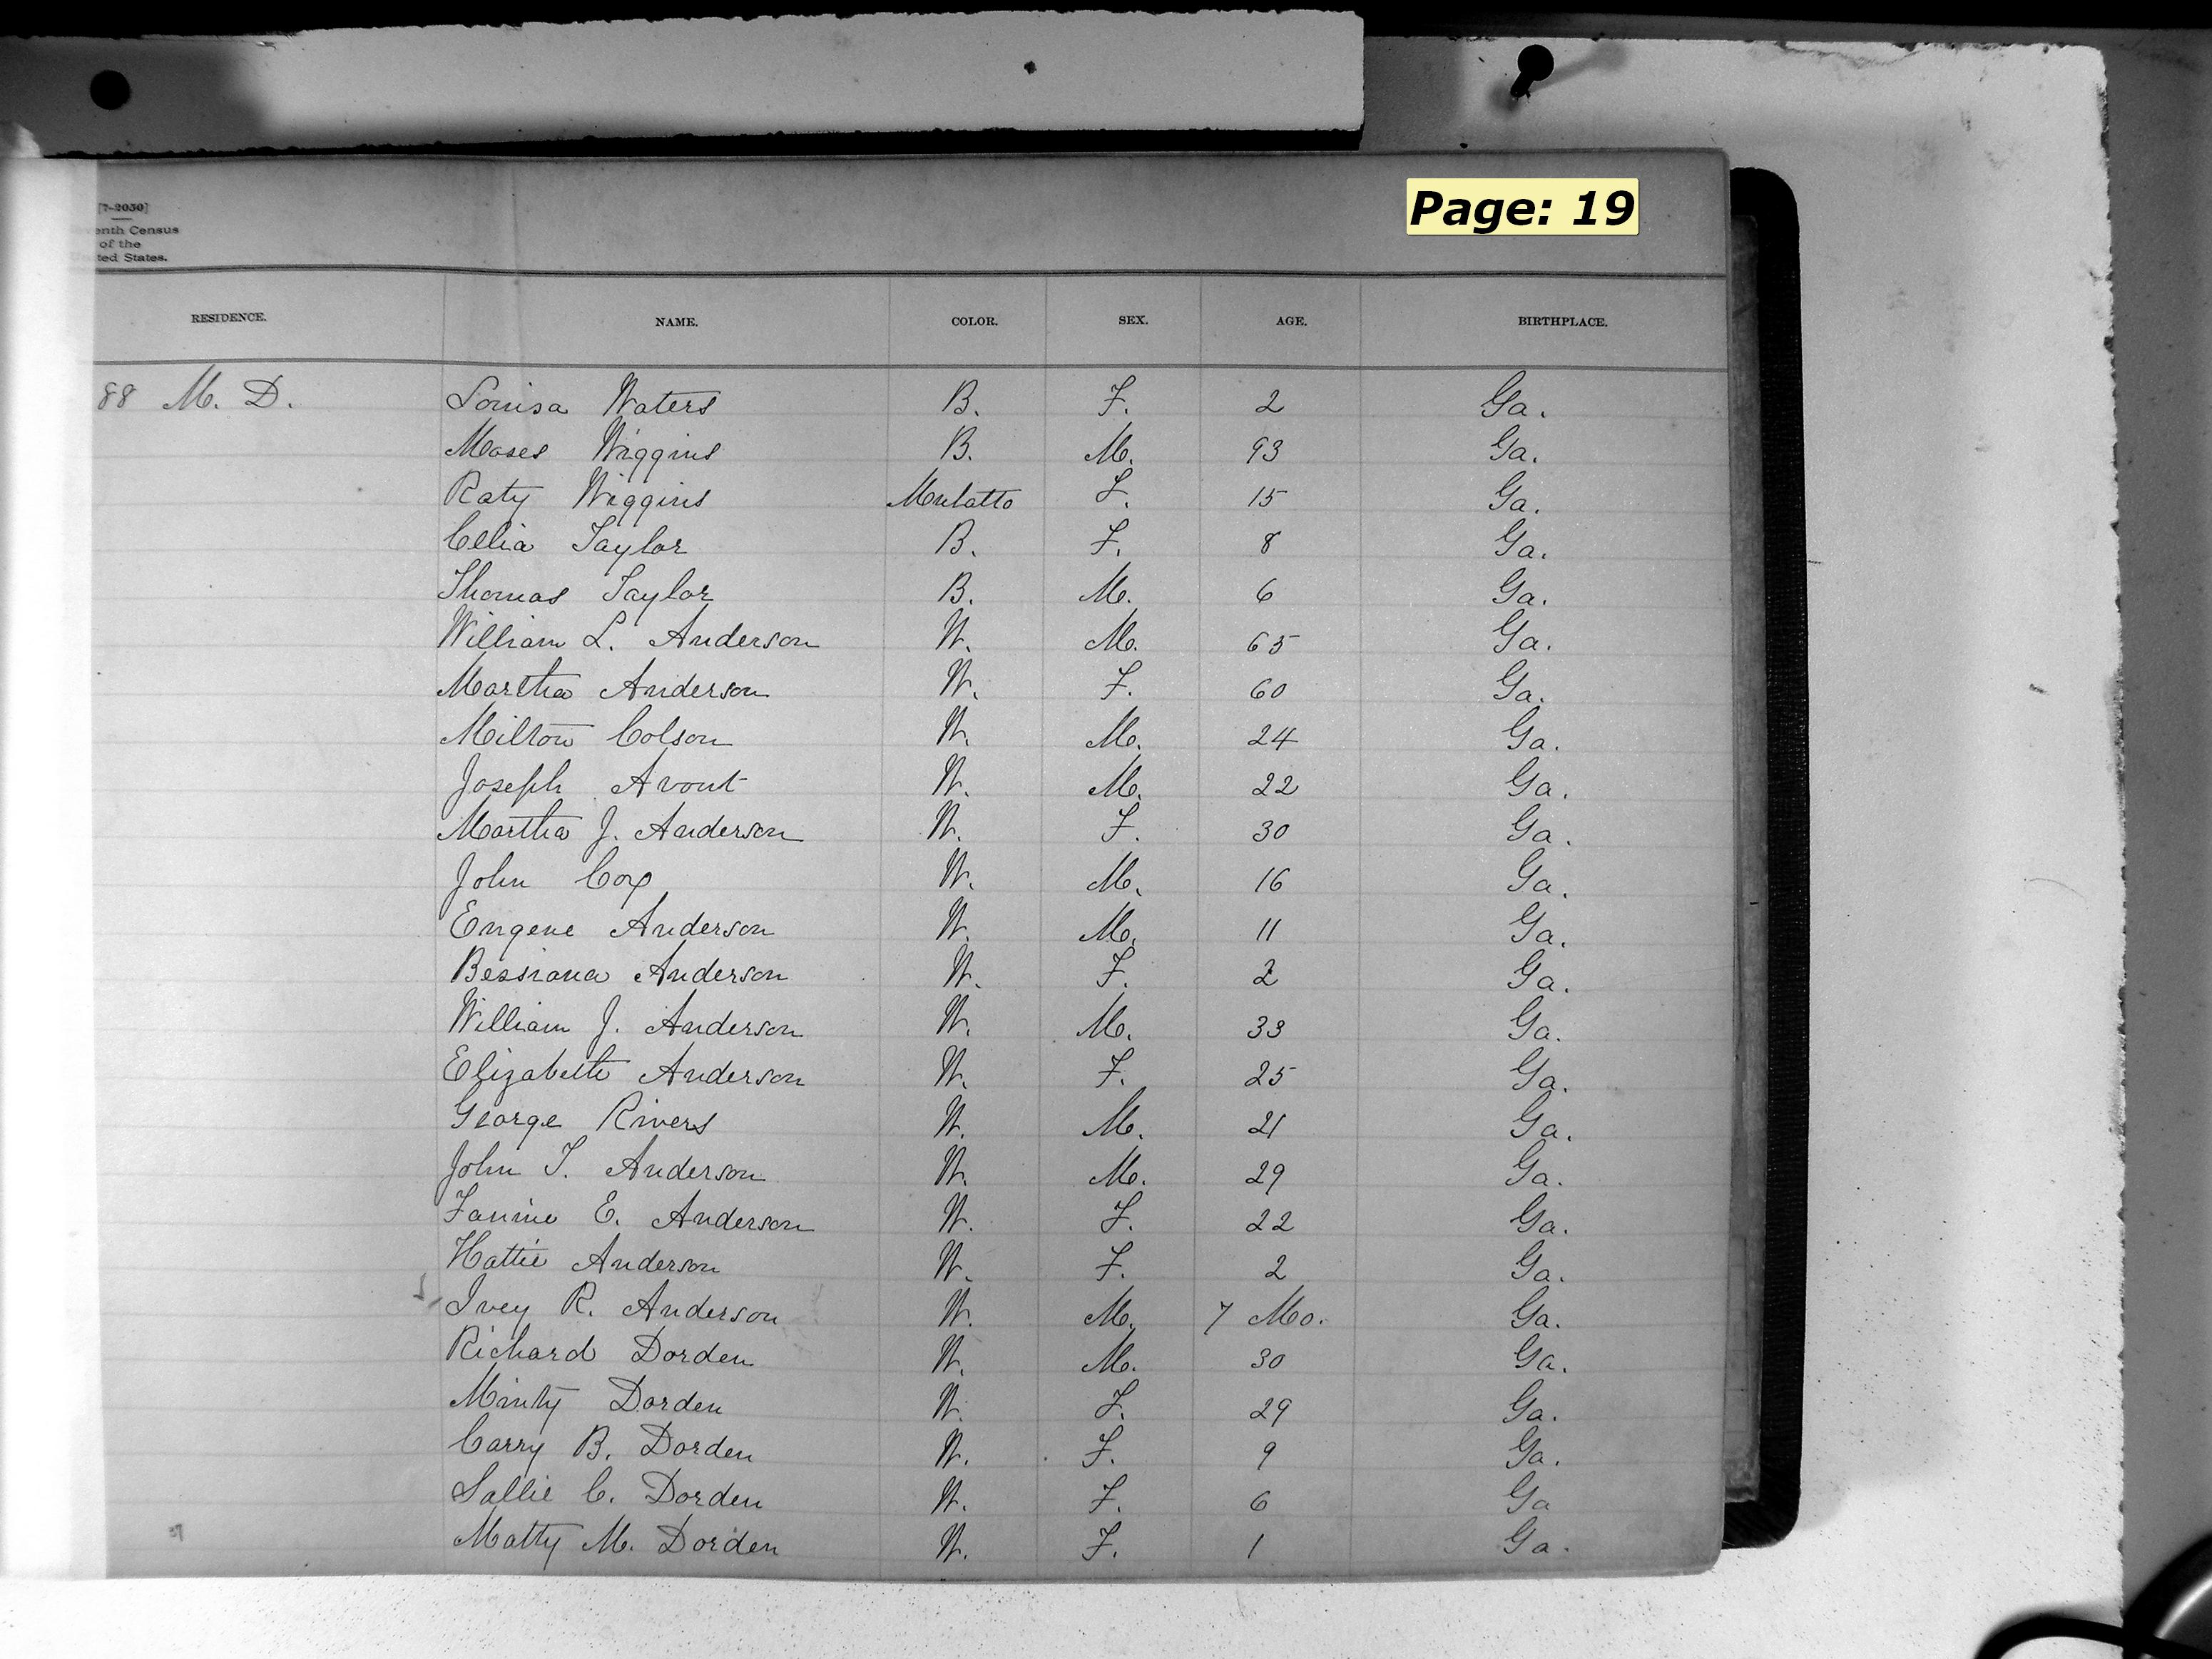 Page: 19
[7-2050]
enth Census
of the
ted States.
RESIDENCE. NAME. COLOR. SEX. AGE. BIRTHPLACE.
88 M. D. Louisa Waters B. F. 2 Ga.
Moses Wiggins B. M. 93 Ga.
Raty Wiggins Mulatto F. 15 Ga.
Celia Taylor B. F. 8 Ga.
Thomas Taylor B. M. 6 Ga.
William L. Anderson W. M. 65 Ga.
Martha Anderson W. F. 60 Ga.
Milton Colson W. M. 24 Ga.
Joseph Avout W. M. 22 Ga.
Martha J. Anderson W. F. 30 Ga.
John Cox W. M. 16 Ga.
Eugene Anderson W. M. 11 Ga.
Bessiana Anderson W. F. 2 Ga.
William J. Anderson W. M. 33 Ga.
Elizabeth Anderson W. F. 25 Ga.
George Rivers W. M. 21 Ga.
John T. Anderson W. M. 29 Ga.
Fannie E. Anderson W. F. 22 Ga.
Hattie Anderson W. F. 2 Ga.
Ivey R. Anderson W. M. 7 Mo. Ga.
Richard Dorden W. M. 30 Ga.
Minty Dorden W. F. 29 Ga.
Carry B. Dorden W. F. 9 Ga.
Sallie C. Dorden W. F. 6 Ga
Matty M. Dorden W. F. 1 Ga.